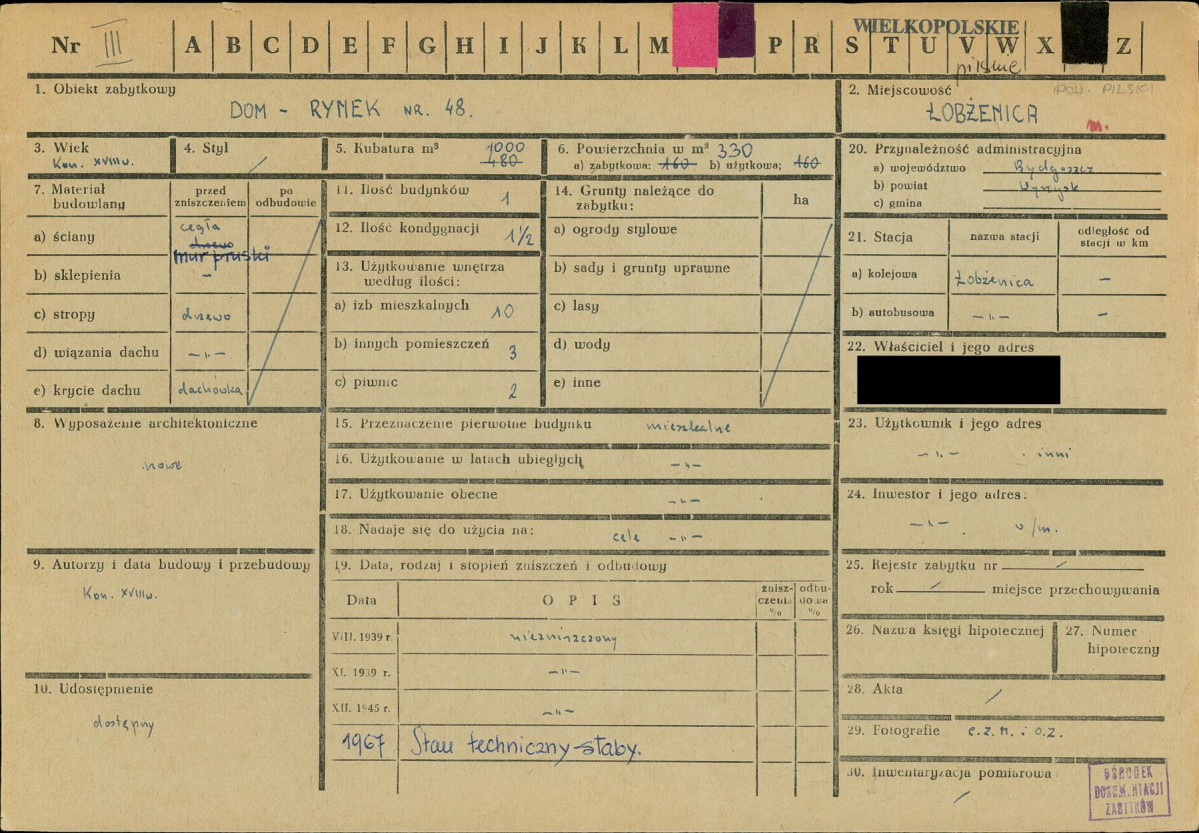 WIELKOPOLSKIE
Nr III A B C D E F G H I J K L M P R S T U V W X Z
pilskie
1. Obiekt zabytkowy
DOM - RYNEK NR. 48.
2. Miejscowość
(POW. PILSKI)
ŁOBŻENICA
m.
3. Wiek
Kon. XVIIIw.
4. Styl /
5. Kubatura m³ 1000
480
6. Powierzchnia w m² 330
a) zabytkowa: 160 b) użytkowa; 160
7. Materiał budowlany
przed zniszczeniem
po odbudowie
a) ściany cegła
drzewo
mur pruski
b) sklepienia -
c) stropy drzewo
d) wiązania dachu -"-
e) krycie dachu dachówka
8. Wyposażenie architektoniczne
nowe
9. Autorzy i data budowy i przebudowy
Kon. XVIIIw.
10. Udostępnienie
dostępny
11. Ilość budynków 1
12. Ilość kondygnacji 1½
13. Użytkowanie wnętrza
według ilości:
a) izb mieszkalnych 10
b) innych pomieszczeń 3
c) piwnic 2
14. Grunty należące do
zabytku:
ha
a) ogrody stylowe
b) sady i grunty uprawne
c) lasy
d) wody
e) inne
15. Przeznaczenie pierwotne budynku mieszkalne
16. Użytkowanie w latach ubiegłych -"-
17. Użytkowanie obecne -"-
18. Nadaje się do użycia na: cele -"-
19. Data, rodzaj i stopień zniszczeń i odbudowy
Data
OPIS
zniszczenia %
odbudowa %
VIII. 1939 r. niezniszczony
XI. 1939 r. -"-
XII. 1945 r. -"-
1967 Stan techniczny-słaby.
20. Przynależność administracyjna
a) województwo Bydgoszcz
b) powiat Wyrzysk
c) gmina
21. Stacja
nazwa stacji
odległość od
stacji w km
a) kolejowa Łobżenica -
b) autobusowa -"- -
22. Właściciel i jego adres
23. Użytkownik i jego adres
-"- i inni
24. Inwestor i jego adres:
-"- w/m.
25. Rejestr zabytku nr /
rok / miejsce przechowywania
26. Nazwa księgi hipotecznej
27. Numer
hipoteczny
28. Akta /
29. Fotografie c.z.n. i o.z.
30. Inwentaryzacja pomiarowa
/
OŚRODEK
DOKUMENTACJI
ZABYTKÓW